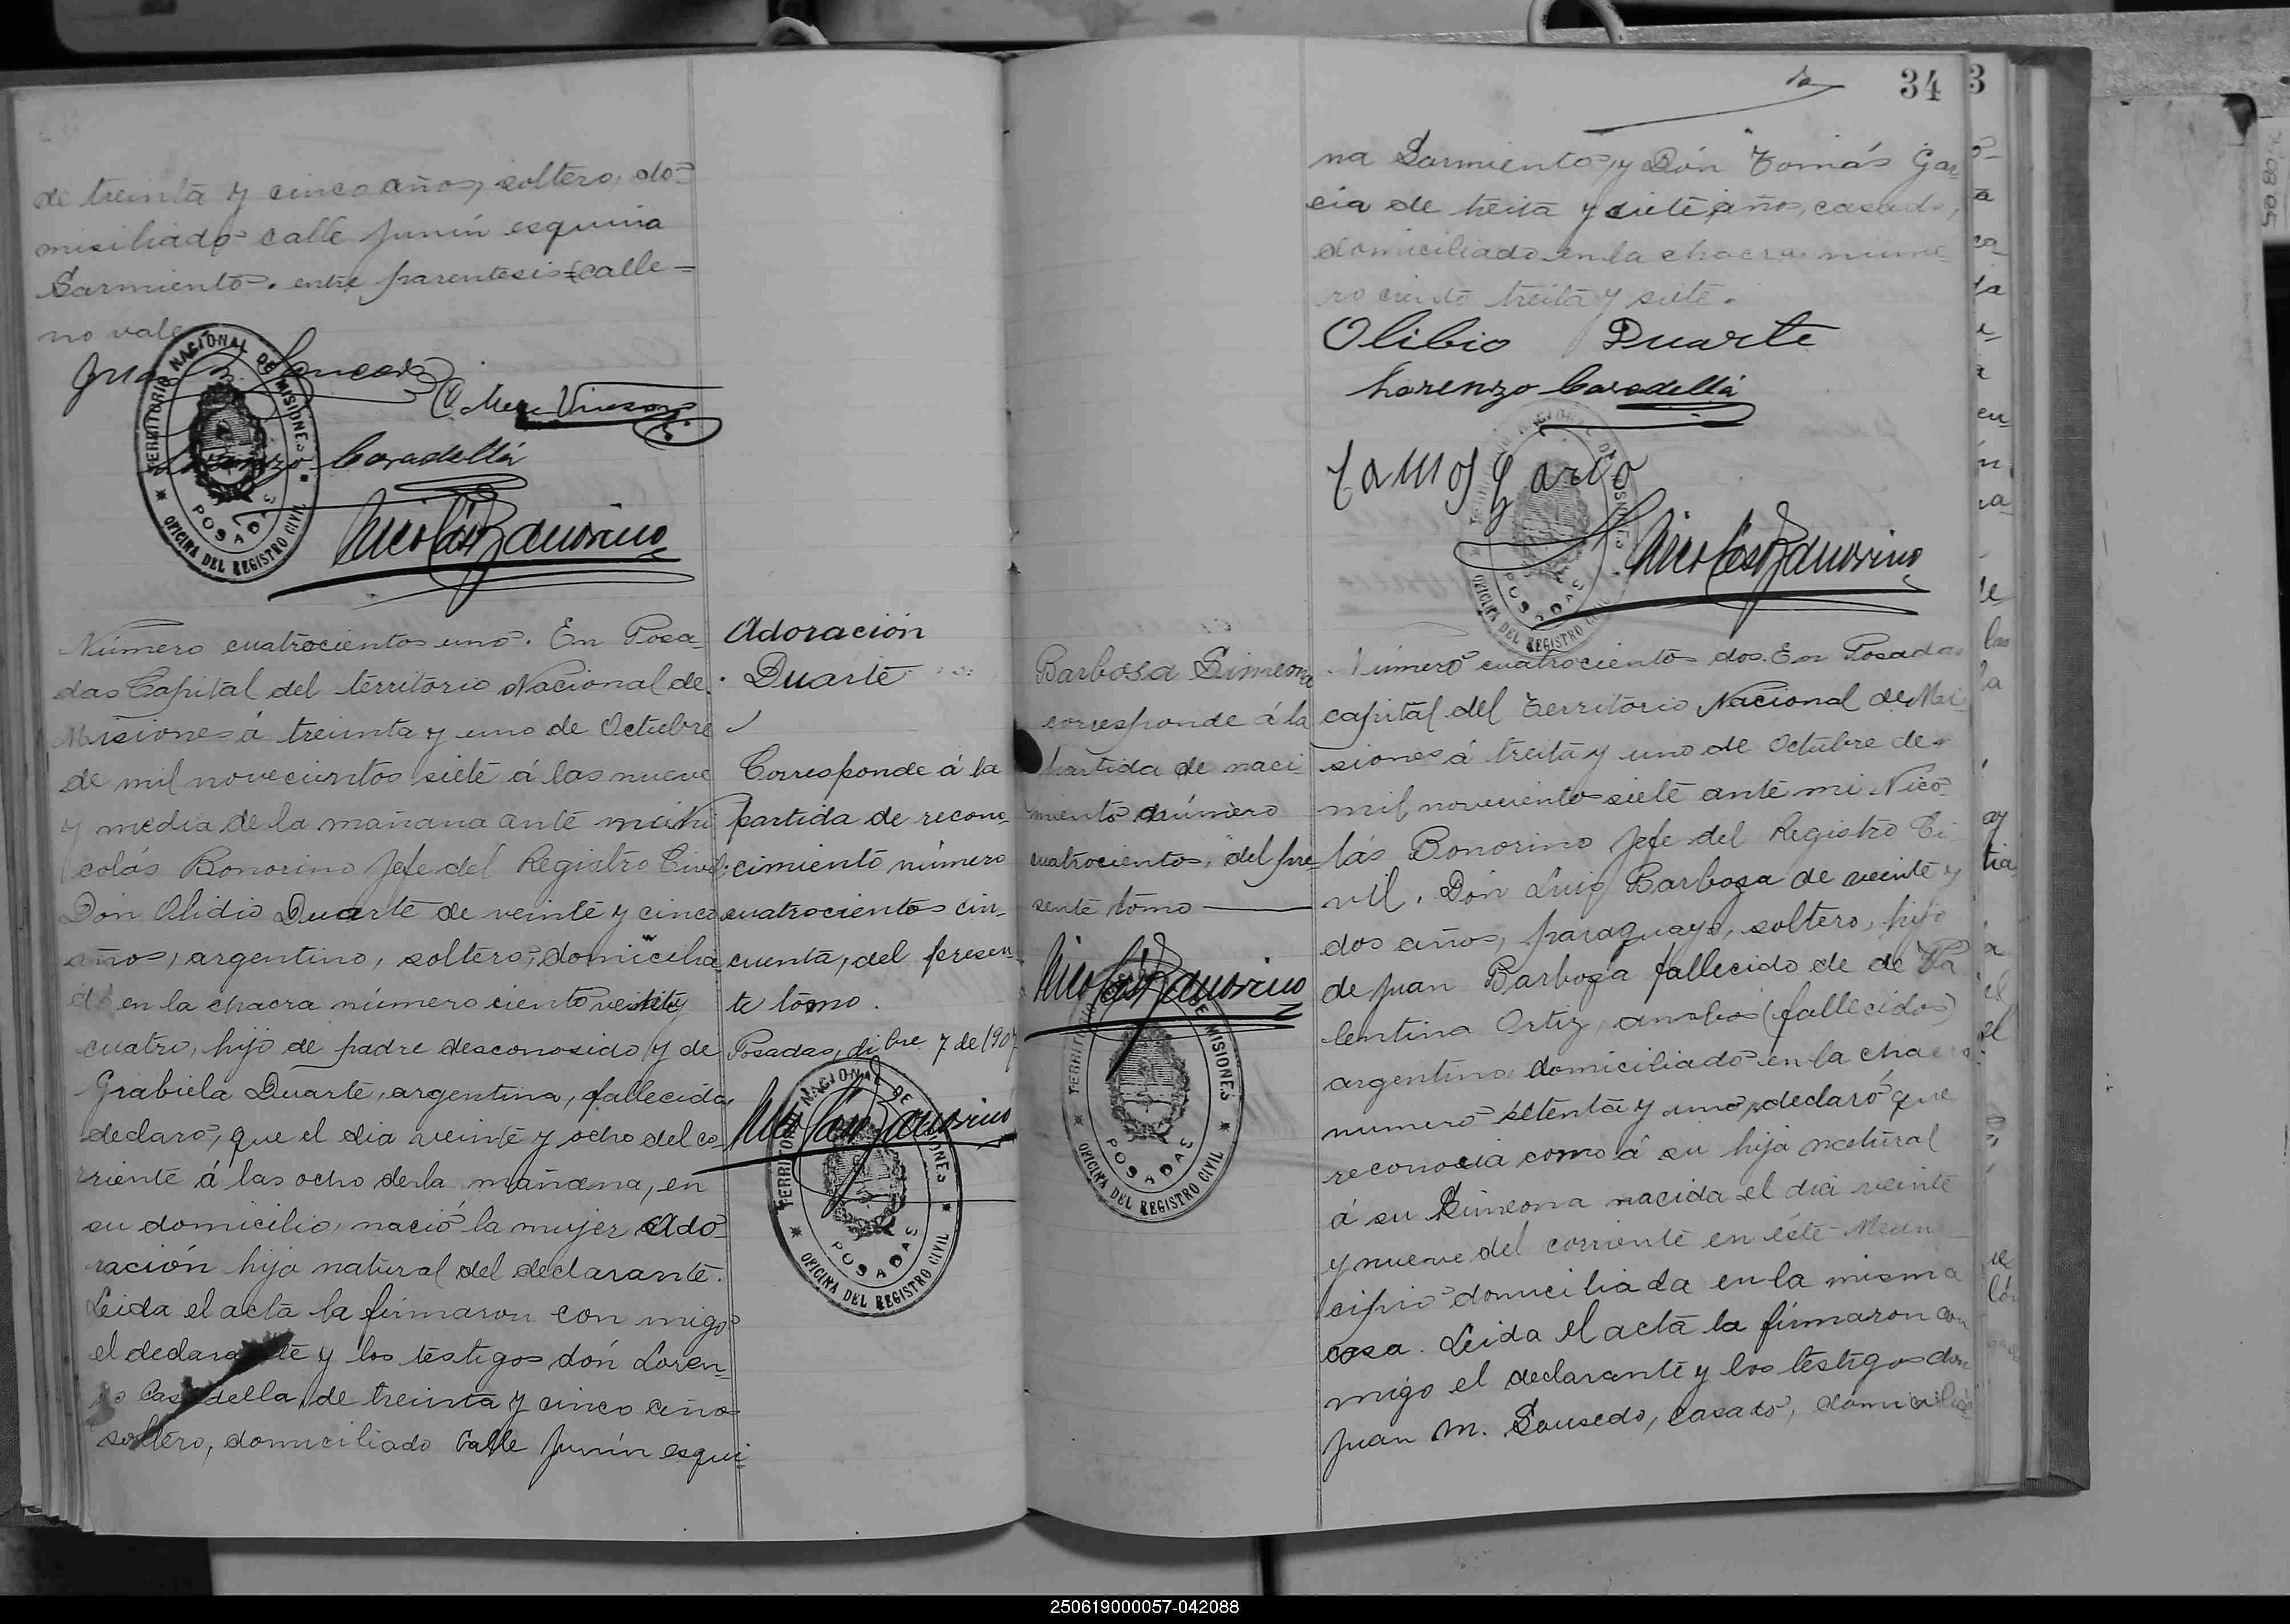 de treinta y cinco años, soltero, do=
misiliado calle Junín esquina
Sarmiento. entre parentesis=calle=
no vale
TERRITORIO NACIONAL DE MISIONES
POSADAS
OFICINA DEL REGISTRO CIVIL
Lorenzo Caradellá
Nicolás Bonorino
Número cuatrocientos uno. En Posa-
das Capital del territorio Nacional de
Misiones á treinta y uno de Octubre
de mil novecientos siete á las nueve
y media de la mañana ante mi Ni
colás Bonorino Jefe del Registro Civil:
Don Olidio Duarte de veinte y cinco
años, argentino, soltero, domicilia
do en la chacra número ciento veinte y
cuatro, hijo de padre desconosido y de
Grabiela Duarte, argentina, fallecida
declaró, que el dia veinte y ocho del co-
rriente á las ocho de la mañana, en
su domicilio, nació la mujer Ado-
ración hija natural del declarante.
Leida el acta la firmaron con migo
el declarante y los testigos dón Loren-
zo Caradella, de treinta y cinco años
soltero, domiciliado Calle Junín esqui-
Adoración
Duarte
Corresponde á la
partida de recono-
cimiento número
cuatrocientos cin-
cuenta, del presen-
te tomo.
Posadas, dibre 7 de 1907
Nicolás Bonorino
TERRITORIO NACIONAL DE MISIONES
POSADAS
OFICINA DEL REGISTRO CIVIL
34
3
na Sarmiento, y Dón Tomás Gar
cia de treita y siete años, casado,
domiciliado en la chacra nume
ro ciento treita y siete.
Olibio Duarte
Lorenzo Caradellá
Tamos Garcia
Nicolás Bonorino
TERRITORIO NACIONAL DE MISIONES
POSADAS
OFICINA DEL REGISTRO CIVIL
Barbosa Simeona
corresponde á la
partida de naci-
miento número
cuatrocientos, del pre-
sente tomo
Nicolás Bonorino
TERRITORIO NACIONAL DE MISIONES
POSADAS
OFICINA DEL REGISTRO CIVIL
Número cuatrocientos dos. En Posadas
capital del Territorio Nacional de Mi
siones á treita y uno de Octubre de
mil novecientos siete ante mi Nico-
lás Bonorino Jefe del Registro Ci
vil. Dón Luis Barboza de veinte y
dos años, paraguayo, soltero, hijo
de Juan Barboza fallecido de de Va
lentina Ortiz, ambos (fallecidos)
argentino domiciliado en la chacra
numero setenta y uno, declaró que
reconocia como á su hija natural
á su Simeona nacida el dia veinte
y nueve del corriente en éste Muni-
cipio domiciliada en la misma
casa. Leida el acta la firmaron con
migo el declarante y los testigos don
Juan M. Sousedo, casado, domicilia
250619000057-042088